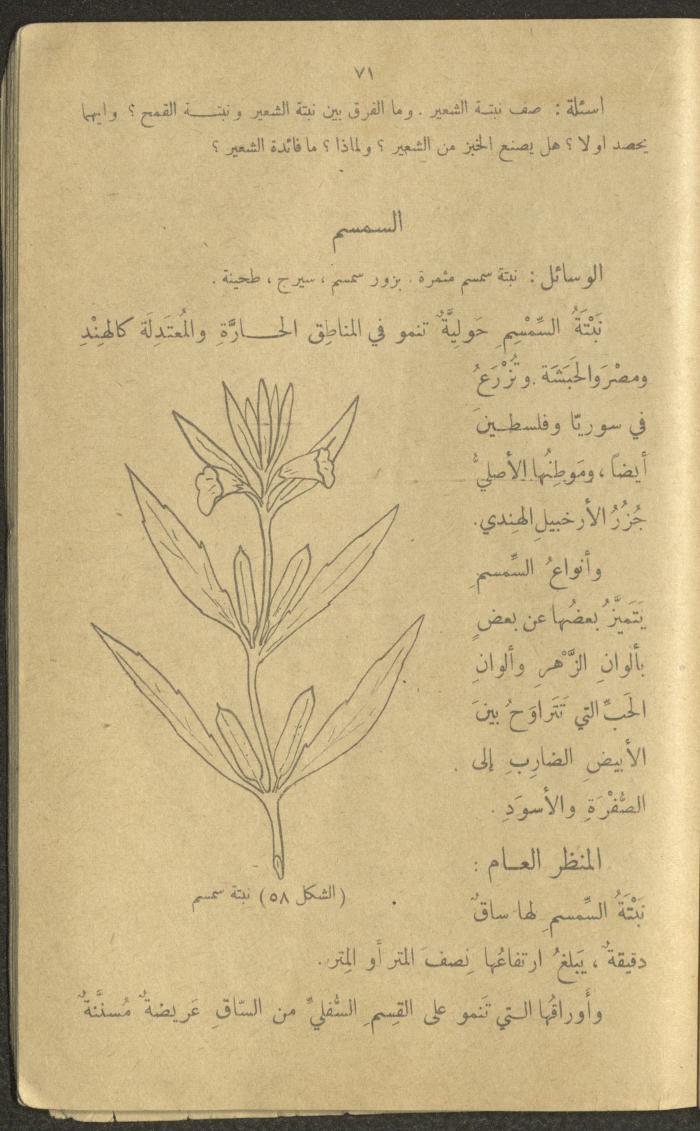 ٧١
اسئلة : صف نبتـة الشعير . وما الفرق بين نبتة الشعير ونبتـــة القمح ؟ وايهما
يحصد اولا ؟ هل يصنع الخبز من الشعير ؟ ولماذا ؟ ما فائدة الشعير ؟
السمسم
الوسائل : نبتة سمسم مثمرة . بزور سمسم ، سيرج ، طحينة .
نَبْتَةُ السِّمْسِمِ حَولِيَّةٌ تنمو في المناطِق الحـــارَّةِ والمُعتَدِلَة كالهِنْدِ
ومصْرَ والحَبَشَة . وتُزْرَعُ
في سوريّا وفلسطـينَ
أيضاً ، ومَوطِنُها الأصليُّ
جُزُرُ الأرخبيلِ الهِندي.
وأنواعُ السِّمسمِ
يَتَميَّزُ بعضُها عن بعضٍ
بألوانِ الزَّهْرِ وألوانِ
الحَبِّ التي تَتَراوَحُ بينَ
الأبيضِ الضارِبِ إلى
الصُّفْرَةِ والأسوَدِ .
المنظر العـام :
نَبْتَةُ السِّمسمِ لها ساقٌ
دقيقةٌ ، يَبلغُ ارتفاعُها نِصفَ المتر أو المِتر.
وأَوراقُها الـتي تَنمو على القِسمِ السُّفليِّ من السّاقِ عَريضةٌ مُسنَّنةٌ
(الشكل ٥٨) نبتة سمسم